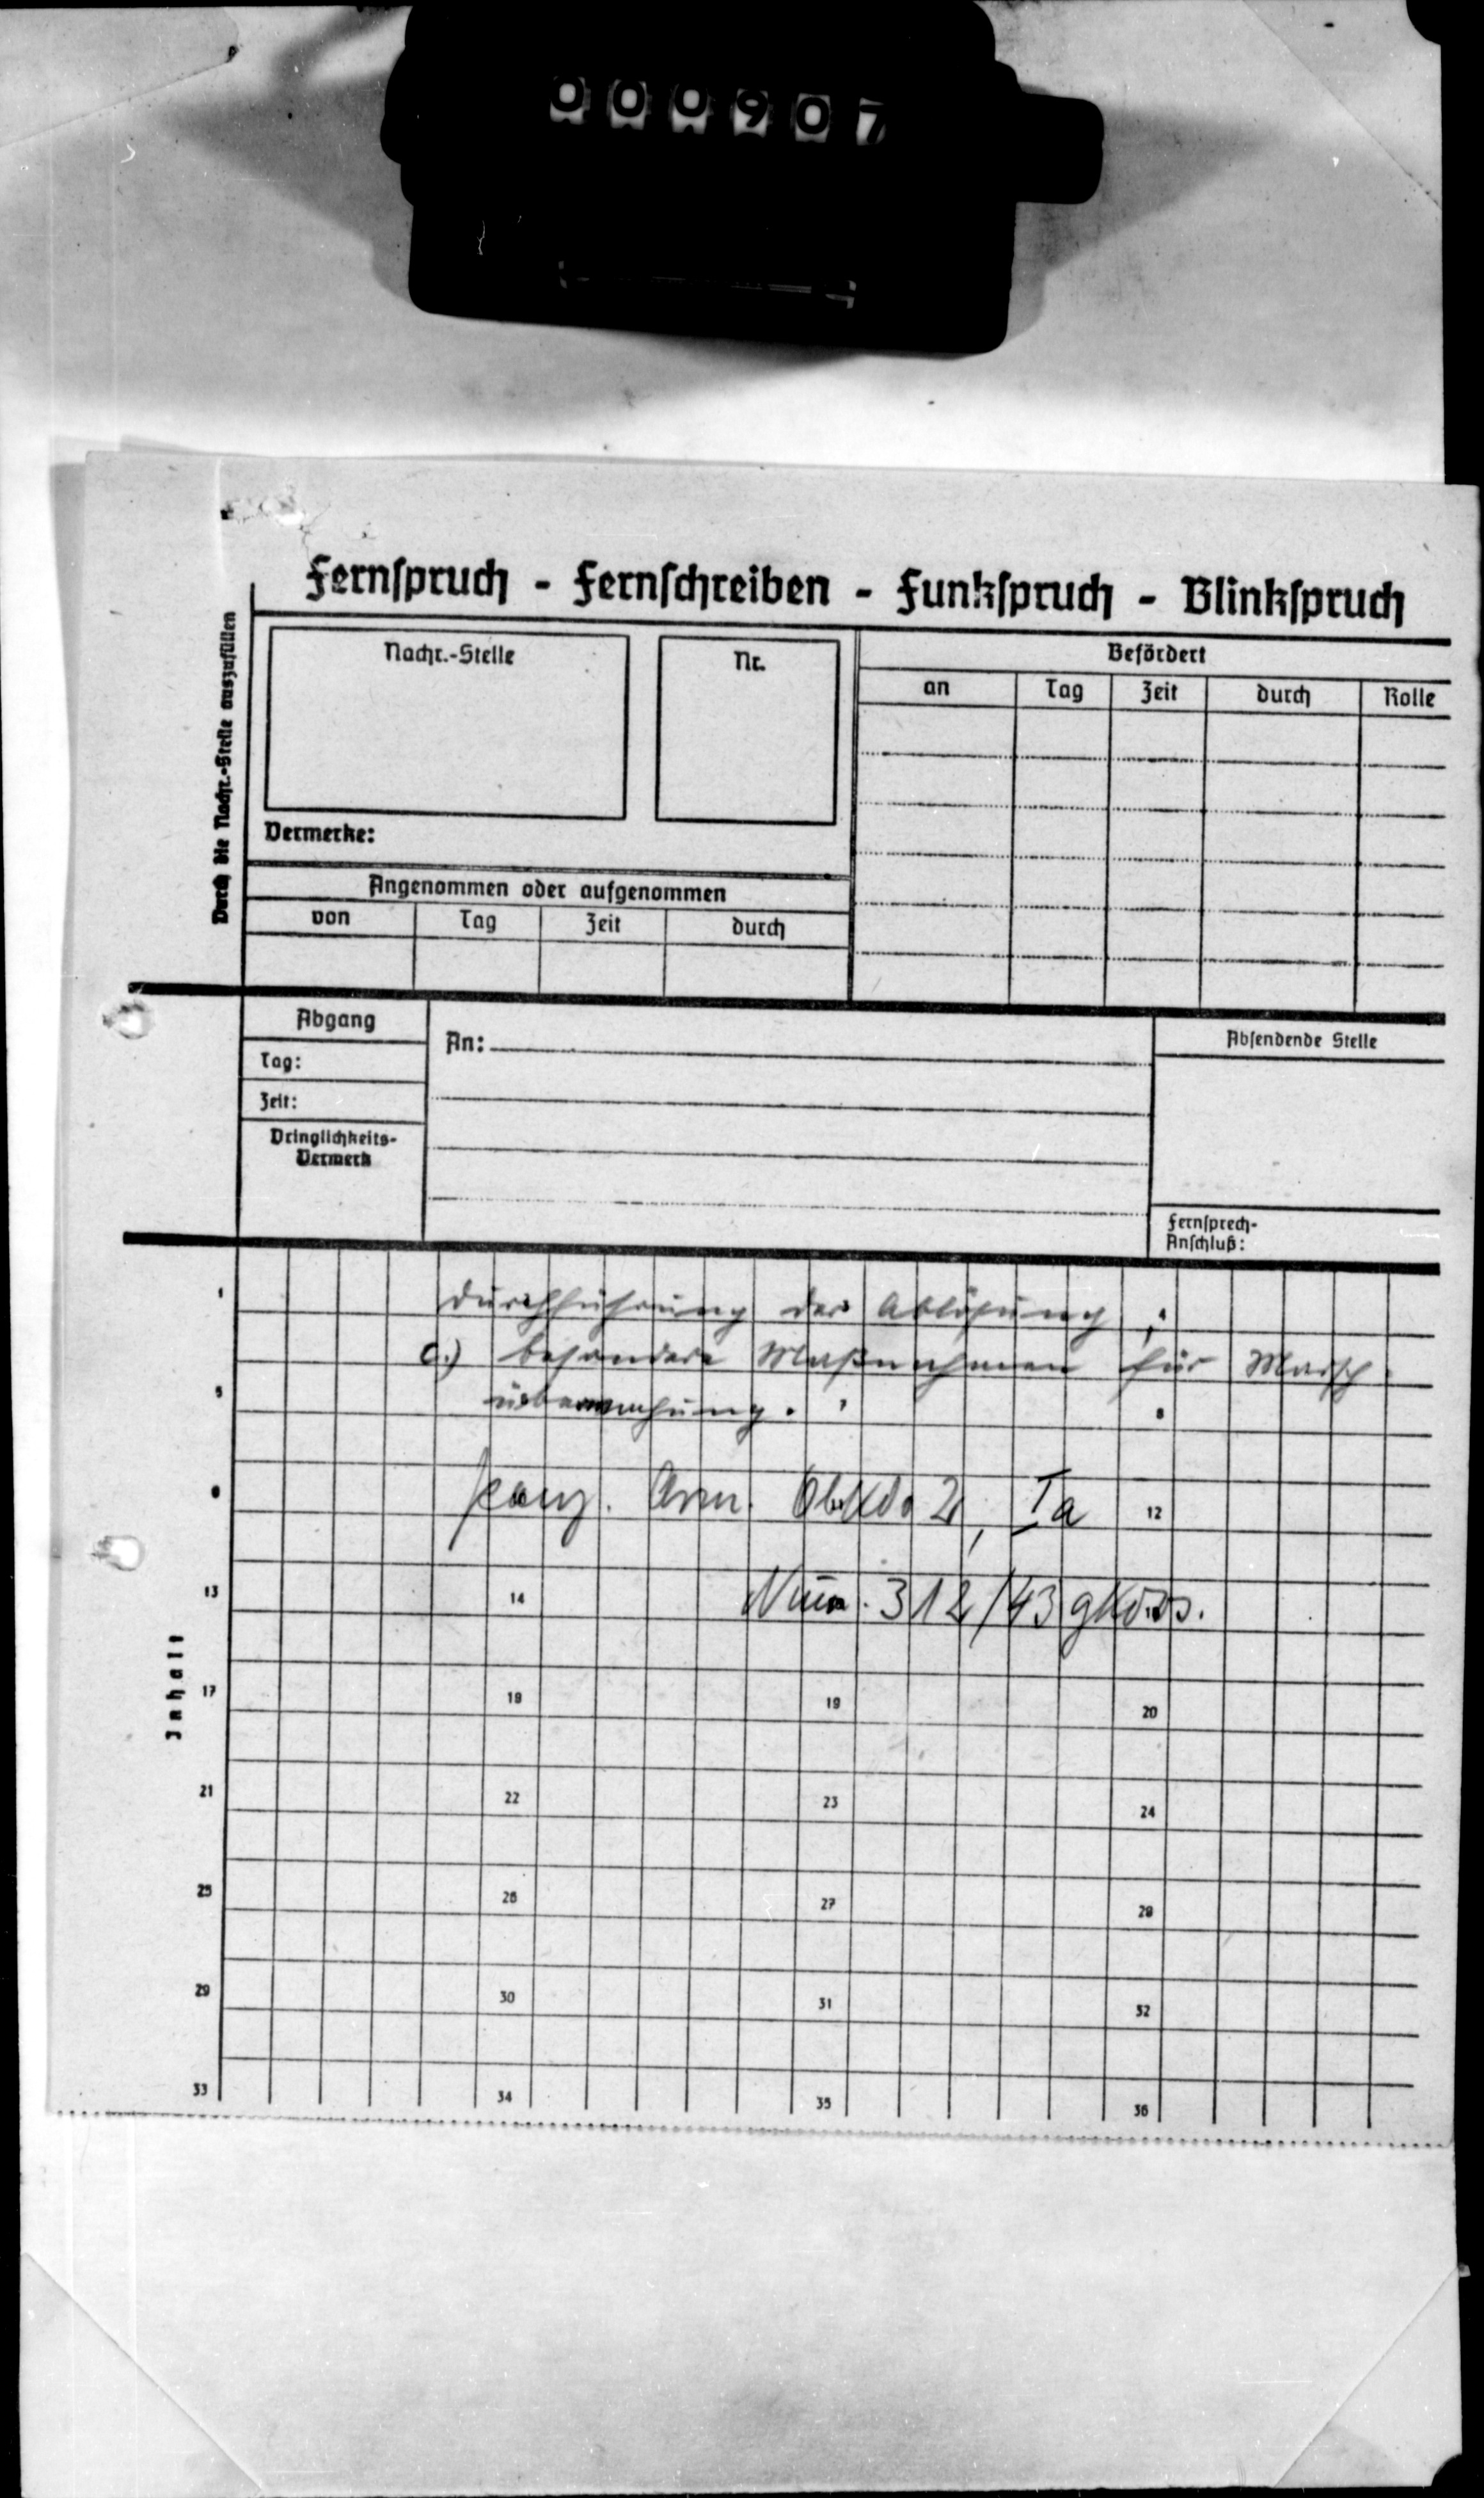 000907
Fernspruch - Fernschreiben - Funkspruch - Blinkspruch
Durch die Nachr.-Stelle auszufüllen
Nachr.-Stelle
Nr.
Befördert
an Tag Zeit durch Rolle
Vermerke:
Angenommen oder aufgenommen
von Tag Zeit durch
Abgang
Tag:
Zeit:
Dringlichkeits-
Vermerk
An:
Absendende Stelle
Fernsprech-
Anschluß:
Inhalt
1 Durchführung der Ablösung;
c.) besondere Maßnahmen für Marsch-
5 überwachung.
Panz. Arm. Ob.Kdo 2, Ia 12
13 14 Num. 312/43 gKdos.
17 18 19 20
21 22 23 24
25 26 27 28
29 30 31 32
33 34 35 36